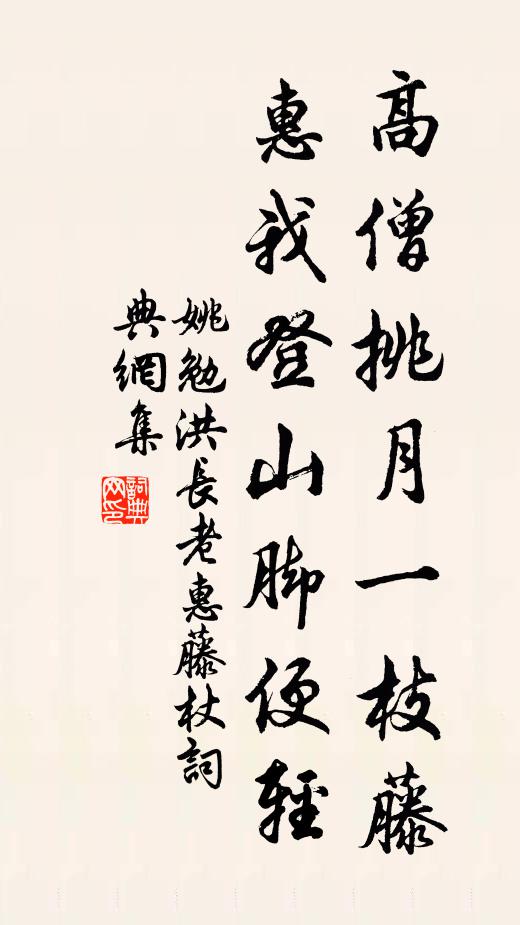 高僧挑月一枝藤
惠我登山脚便輕
姚勉洪長老惠藤杖詞
典網集
詞典
网印